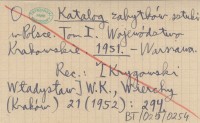 O Katalog zabytków sztuki
w Polsce. Tom I. Województwo
Krakowskie. 1951. - Warszawa.
Rec.: "[Krygowski
Władysław] W.K., Wierchy
(Kraków) 21 (1952): 294.
BT/025/0254